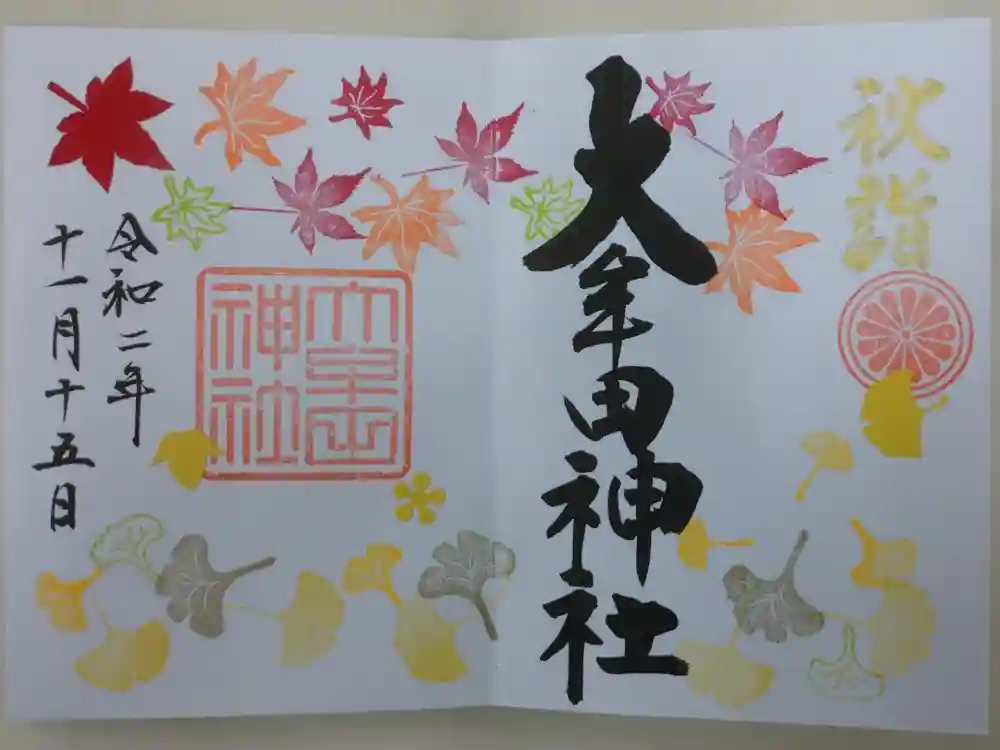 秋詣
大牟田神社
神社
令和二年
十一月十五日